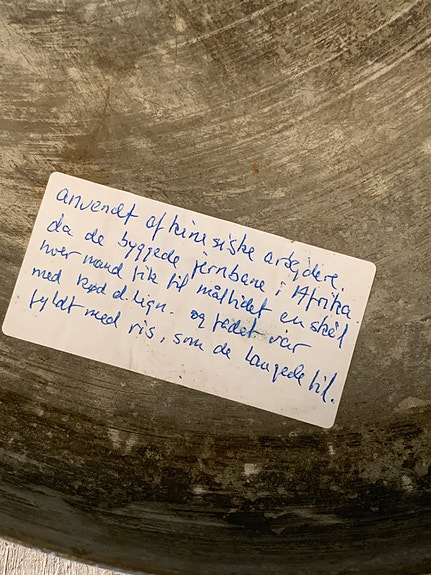 anvendt af kinesiske arbejdere,
da de byggede jernbane i Afrika.
hver mand fik til måltidet en skål
med kød d.lign. og fadet var
fyldt med ris, som de langede til.